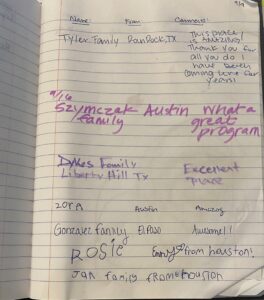 9/9
Name From Comments
Tyler Family Round Rock, TX This place is AMAZING!
Thank you for
all you do I
have been
coming here for
years!
9/16
Szymczak Austin What a
family great
program
Dykes Family Excellent
Liberty Hill Tx Place
Zora Austin Amazing
Gonzalez family El Paso Awesome!!
Rosie from houston!
Jan family from houston